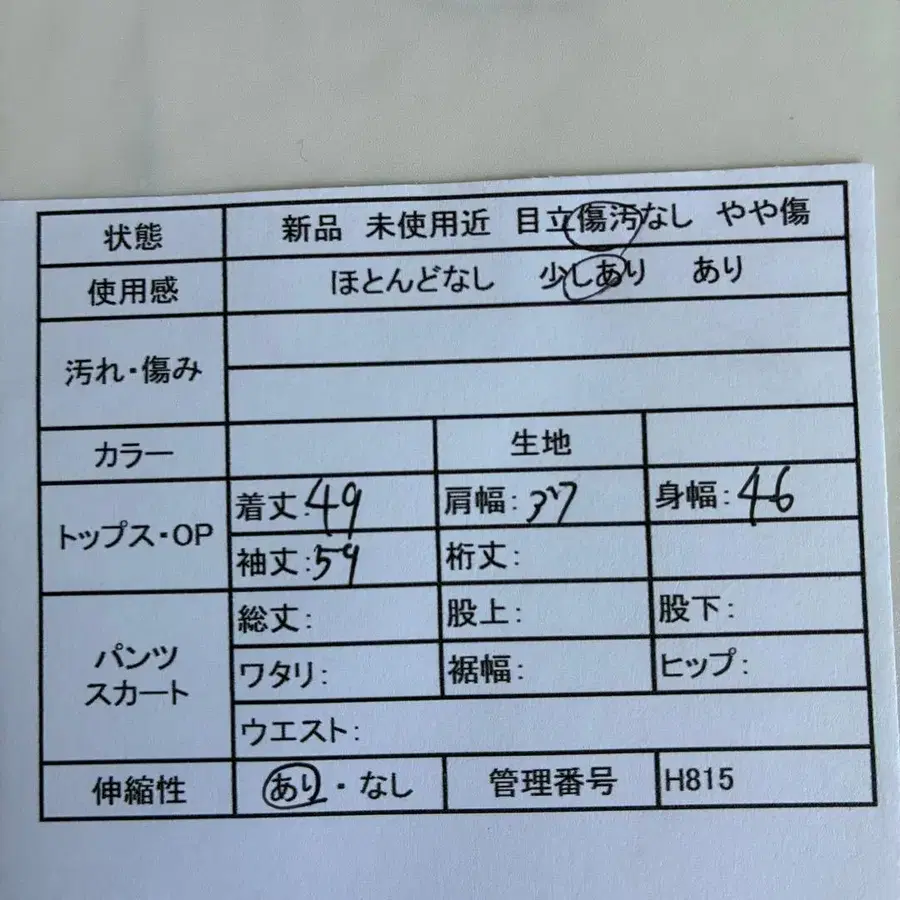 状態 新品 未使用近 目立傷汚なし やや傷
使用感 ほとんどなし 少しあり あり
汚れ・傷み
カラー 生地
トップス・OP
着丈:49 肩幅:37 身幅:46
袖丈:59 裄丈:
パンツ
スカート
総丈: 股上: 股下:
ワタリ: 裾幅: ヒップ:
ウエスト:
伸縮性 あり・なし 管理番号 H815